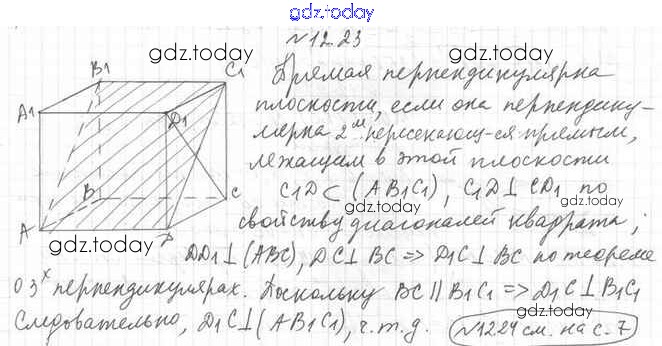 gdz.today
№12.23
gdz.today
gdz.today
B1
C1
Прямая перпендикулярна
A1
D1
плоскости, если она перпендику-
gdz.today
лярна 2ум пересекающ-ся прямым,
лежащим в этой плоскости
B
C
C1D ⊂ (AB1C1), C1D ⊥ CD1 по
gdz.today
A
D
свойству диагоналей квадрата;
gdz.today
DD1 ⊥ (ABC), DC ⊥ BC => D1C ⊥ BC по теореме
о 3х перпендикулярах. Поскольку BC || B1C1 => D1C ⊥ B1C1
gdz.today
Следовательно, D1C ⊥ (AB1C1), ч.т.д.
№1224 см. на с. 7